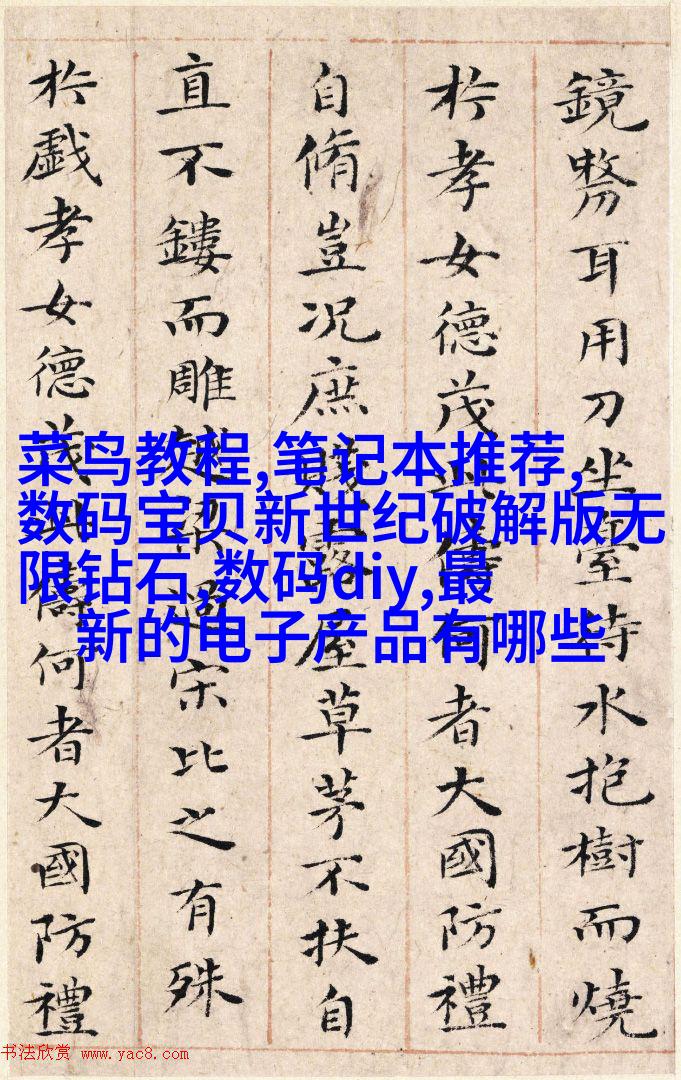 鏡剺耳用刀坐臺待水抱樹而燒
於孝女德茂此儔何者大國防禮
自脩豈況庶賤露屋草茅不扶自
直不鏤而雕越梁過宋比之有殊
於戲孝女德茂此儔何者大國防禮
菜鸟教程,笔记本推荐,
数码宝贝新世纪破解版无
限钻石,数码diy,最
新的电子产品有哪些
书法欣赏 www.yac8.com